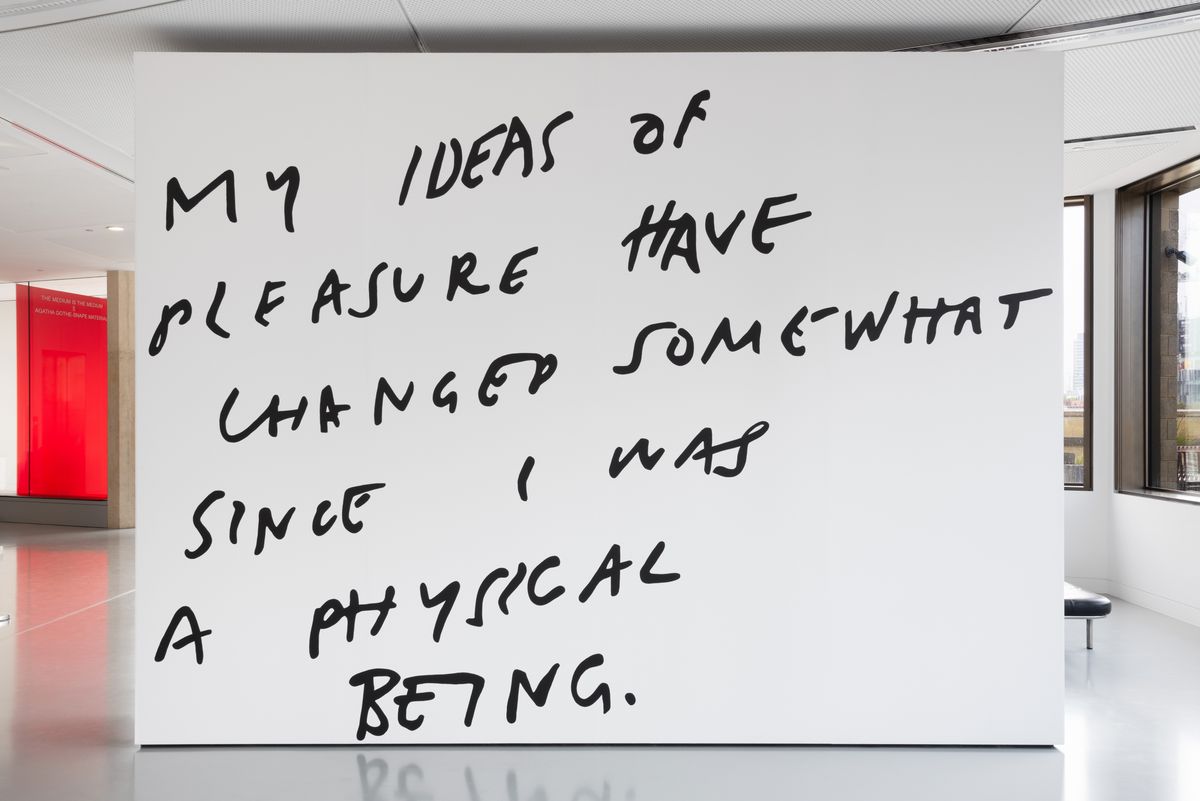 MY IDEAS OF
PLEASURE HAVE
CHANGED SOMEWHAT
SINCE I WAS
A PHYSICAL
BEING.
THE MEDIUM IS THE MEDIUM
AGATHA GOTHE-SNAPE MATERIAL